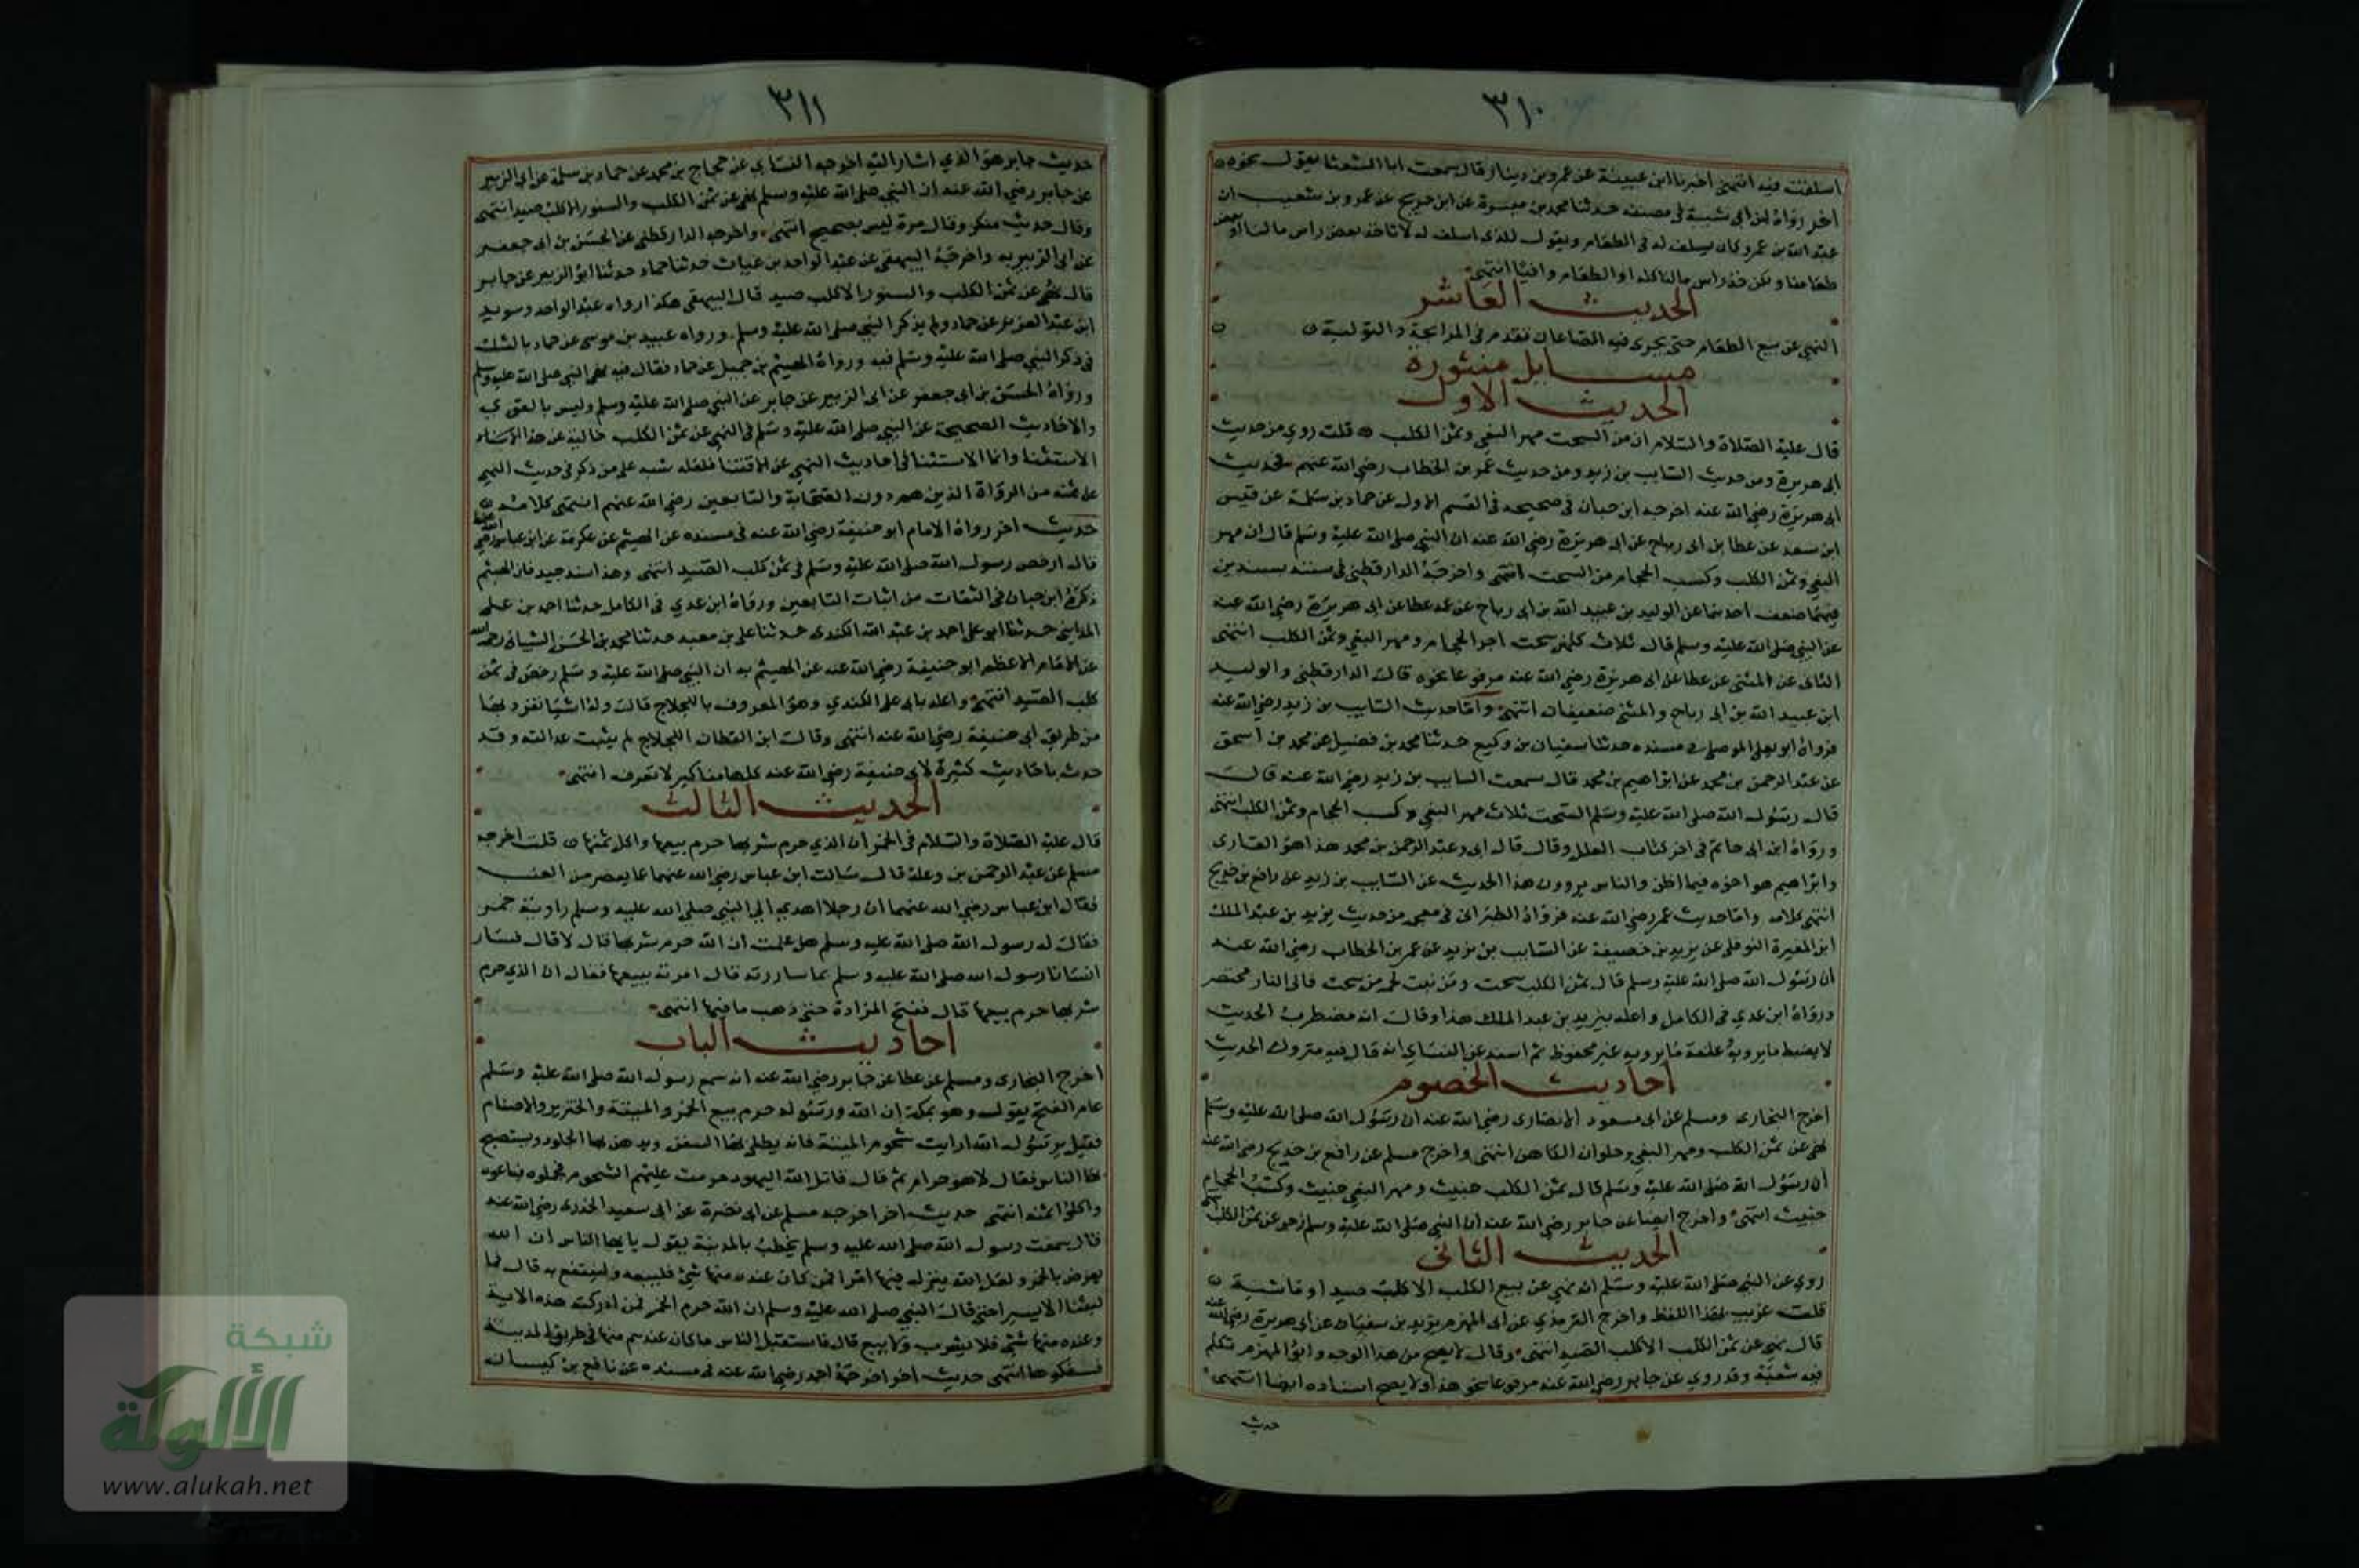 ٣١٠
اسلفت فيه انتهى اخبرنا ابن عيينة عن عمرو بن دينار قال سمعت ابا الشعثا يقول نحوه
اخر رواه ابن ابي شيبة في مصنفه حدثنا محمد بن ميسرة عن ابن جريج عن عمرو بن شعيب ان
عبد الله بن عمرو كان يسلف له في الطعام ويقول للذي اسلف له لا تاخذ بعض راس مالنا او بعض
طعامنا ولكن خذ راس مالنا كله او الطعام وافيا انتهى
الحديث العاشر
النهي عن بيع الطعام حتى يجرى فيه الصاعان تقدم في المرابحة والتولية
مسايل منثورة
الحديث الاول
قال عليه الصلاة والسلام ان من السحت مهر البغي وثمن الكلب قلت روي من حديث
ابي هريرة ومن حديث السايب بن زيد ومن حديث عمر بن الخطاب رضي الله عنهم فحديث
ابي هريرة رضي الله عنه اخرجه ابن حبان في صحيحه في القسم الاول عن حماد بن سلمة عن قيس
ابن سعد عن عطا بن ابي رباح عن ابي هريرة رضي الله عنه ان النبي صلى الله عليه وسلم قال ان مهر
البغي وثمن الكلب وكسب الحجام من السحت انتهى واخرجه الدارقطني في سننه بسندين
فيهما ضعف احدهما عن الوليد بن عبيد الله بن ابي رباح عن عمه عطا عن ابي هريرة رضي الله عنه
عن النبي صلى الله عليه وسلم قال ثلاث كلهن سحت اجر الحجام ومهر البغي وثمن الكلب انتهى
الثاني عن المثنى عن عطا عن ابي هريرة رضي الله عنه مرفوعا نحوه قال الدارقطني والوليد
ابن عبيد الله بن ابي رباح والمثنى ضعيفان انتهى واما حديث السايب بن زيد رضي الله عنه
فرواه ابو يعلى الموصلي في مسنده حدثنا سفيان بن وكيع حدثنا محمد بن فضيل عن محمد بن اسحق
عن عبد الرحمن بن محمد عن ابراهيم بن محمد قال سمعت السايب بن زيد رضي الله عنه قال
قال رسول الله صلى الله عليه وسلم السحت ثلاث مهر البغي وكسب الحجام وثمن الكلب انتهى
ورواه ابن ابي حاتم في اخر كتاب العلل وقال قال ابي وعبد الرحمن بن محمد هذا هو القارى
وابراهيم هو اخوه فيما اظن والناس يروون هذا الحديث عن السايب بن زيد عن رافع بن خديج
انتهى كلامه واما حديث عمر رضي الله عنه فرواه الطبراني في معجمه من حديث يزيد بن عبد الملك
ابن المغيرة النوفلي عن يزيد بن خصيفة عن السايب بن يزيد عن عمر بن الخطاب رضي الله عنه
ان رسول الله صلى الله عليه وسلم قال ثمن الكلب سحت ومن نبت لحمه من سحت فالى النار مختصر
ورواه ابن عدي في الكامل واعله بيزيد بن عبد الملك هذا وقال انه مضطرب الحديث
لا يضبط ما يرويه وعامة ما يرويه غير محفوظ ثم اسند عن النساي انه قال فيه متروك الحديث
احاديث الخصوم
اخرج البخارى ومسلم عن ابي مسعود الانصارى رضي الله عنه ان رسول الله صلى الله عليه وسلم
نهى عن ثمن الكلب ومهر البغي وحلوان الكاهن انتهى واخرج مسلم عن رافع بن خديج رضي الله عنه
ان رسول الله صلى الله عليه وسلم قال ثمن الكلب خبيث ومهر البغي خبيث وكسب الحجام
خبيث انتهى واخرج ايضا عن جابر رضي الله عنه ان النبي صلى الله عليه وسلم زجر عن ثمن الكلب
الحديث الثاني
روي عن النبي صلى الله عليه وسلم انه نهي عن بيع الكلب الا كلب صيد او ماشية
قلت غريب بهذا اللفظ واخرج الترمذي عن ابي المهزم يزيد بن سفيان عن ابي هريرة رضي الله عنه
قال نهي عن ثمن الكلب الا كلب الصيد انتهى وقال لا يصح من هذا الوجه وابو المهزم تكلم
فيه شعبة وقد روي عن جابر رضي الله عنه مرفوعا نحو هذا ولا يصح اسناده ايضا انتهى
حديث
٣١١
حديث جابر هو الذي اشار اليه اخرجه النساي عن حجاج بن محمد عن حماد بن سلمة عن ابي الزبير
عن جابر رضي الله عنه ان النبي صلى الله عليه وسلم نهى عن ثمن الكلب والسنور الا كلب صيد انتهى
وقال حديث منكر وقال مرة ليس بصحيح انتهى واخرجه الدارقطني عن الحسن بن ابي جعفر
عن ابي الزبير به واخرجه البيهقي عن عبد الواحد بن غياث حدثنا حماد حدثنا ابو الزبير عن جابر
قال نهى عن ثمن الكلب والسنور الا كلب صيد قال البيهقي هكذا رواه عبد الواحد وسويد
ابن عبد العزيز عن حماد ولم يذكر النبي صلى الله عليه وسلم ورواه عبيد بن موسى عن حماد بالشك
في ذكر النبي صلى الله عليه وسلم فيه ورواه الهيثم بن جميل عن حماد فقال فيه نهى النبي صلى الله عليه وسلم
ورواه الحسن بن ابي جعفر عن ابي الزبير عن جابر عن النبي صلى الله عليه وسلم وليس بالقوي
والاحاديث الصحيحة عن النبي صلى الله عليه وسلم في النهي عن ثمن الكلب خالية عن هذا
الاستثنا وانما الاستثنا في احاديث النهي عن الاقتنا فلعله شبه على من ذكر في حديث النهي
عن ثمنه من الرواة الذين هم دون الصحابة والتابعين رضي الله عنهم انتهى كلامه
حديث اخر رواه الامام ابو حنيفة رضي الله عنه في مسنده عن الهيثم عن عكرمة عن ابن عباس رضي الله عنهما
قال ارخص رسول الله صلى الله عليه وسلم في ثمن كلب الصيد انتهى وهذا سند جيد فان الهيثم
ذكره ابن حبان في الثقات من اثبات التابعين ورواه ابن عدي في الكامل حدثنا احمد بن علي
المدايني حدثنا ابو علي احمد بن عبد الله الكندى حدثنا علي بن معبد حدثنا محمد بن الحسن الشيباني رحمه الله
عن الامام الاعظم ابو حنيفة رضي الله عنه عن الهيثم به ان النبي صلى الله عليه وسلم رخص في ثمن
كلب الصيد انتهى واعله بابي علي الكندي وهو المعروف باللجلاج قال وله اشيا تفرد بها
من طريق ابي حنيفة رضي الله عنه انتهى وقال ابن القطان اللجلاج لم يثبت عدالته وقد
حدث باحاديث كثيرة لابي حنيفة رضي الله عنه كلها مناكير لا تعرف انتهى
الحديث الثالث
قال عليه الصلاة والسلام في الخمر ان الذي حرم شربها حرم بيعها واكل ثمنها قلت اخرجه
مسلم عن عبد الرحمن بن وعلة قال سالت ابن عباس رضي الله عنهما عما يعصر من العنب
فقال ابن عباس رضي الله عنهما ان رجلا اهدي الي النبي صلى الله عليه وسلم راوية خمر
فقال له رسول الله صلى الله عليه وسلم هل علمت ان الله حرم شربها قال لا قال فسار
انسانا رسول الله صلى الله عليه وسلم بما ساررته قال امرته ببيعها فقال ان الذي حرم
شربها حرم بيعها قال ففتح المزادة حتى ذهب ما فيها انتهى
احاديث الباب
اخرج البخارى ومسلم عن عطا عن جابر رضي الله عنه انه سمع رسول الله صلى الله عليه وسلم
عام الفتح يقول وهو بمكة ان الله ورسوله حرم بيع الخمر والميتة والخنزير والاصنام
فقيل يرسول الله ارايت شحوم الميتة فانه يطلى بها السفن ويدهن بها الجلود ويستصبح
بها الناس فقال لا هو حرام ثم قال قاتل الله اليهود حرمت عليهم الشحوم فجملوه فباعوه
واكلوا ثمنه انتهى حديث اخر اخرجه مسلم عن ابي نضرة عن ابي سعيد الخدرى رضي الله عنه
قال سمعت رسول الله صلى الله عليه وسلم يخطب بالمدينة يقول يا يها الناس ان الله
يعرض بالخمر ولعل الله ينزل فيها امرا فمن كان عنده منها شئ فليبعه ولينتفع به قال فما
لبثنا الا يسيرا حتى قال النبي صلى الله عليه وسلم ان الله حرم الخمر فمن ادركته هذه الاية
وعنده منها شئ فلا يشرب ولا يبيع قال فاستقبل الناس ما كان عندهم منها في طريق المدينة
فسفكوها انتهى حديث اخر اخرجه احمد رضي الله عنه في مسنده عن نافع بن كيسان
شبكة
الألوكة
www.alukah.net